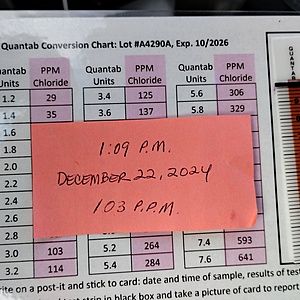 Quantab Conversion Chart: Lot #A4290A, Exp. 10/2026
Quantab Units PPM Chloride Quantab Units PPM Chloride Quantab Units PPM Chloride
1.2 29 3.4 125 5.6 306
1.4 35 3.6 137 5.8 329
1.6
1.8
2.0
2.2
2.4
2.6
2.8 7.4 593
3.0 103 5.2 264 7.6 641
3.2 114 5.4 284
1:09 P.M.
DECEMBER 22, 2024
103 P.P.M.
on a post-it and stick to card: date and time of sample, results of
strip in black box and take a picture of card to report
QUANTAB